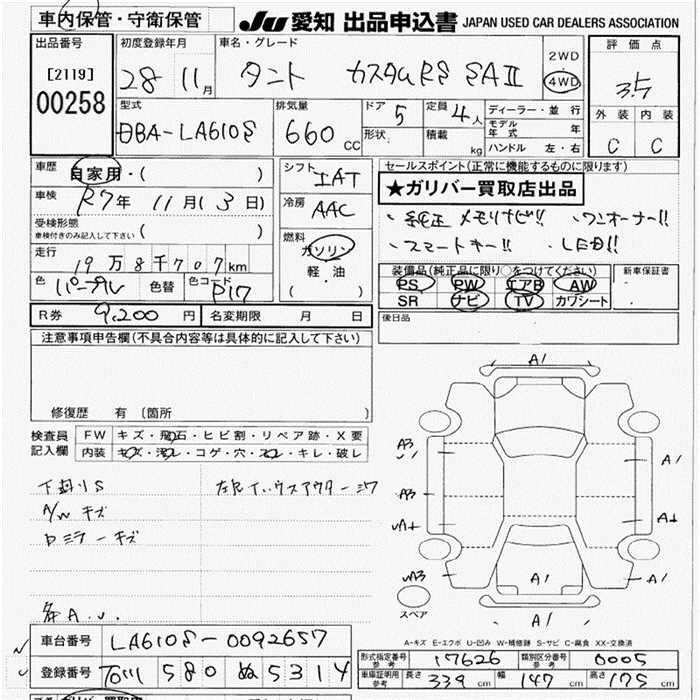 車内保管・守衛保管
JU 愛知 出品申込書 JAPAN USED CAR DEALERS ASSOCIATION
出品番号
[2119]
00258
初度登録年月
28 11月
車名・グレード
タント カスタムRS SAⅡ
2WD
4WD
評価点
3.5
外装 内装
C C
型式
DBA-LA610S
排気量
660 CC
ドア 5
形状
定員 4人
積載 kg
ディーラー・並行
モデル年式 年
ハンドル 左・右
車歴
自家用・( )
車検
R7年 11月(3日)
受検形態
車検付きのみ記入して下さい ( )
走行
19万8千707km
色 パープル 色替 色コード P17
シフト IAT
冷房 AAC
燃料
ガソリン
軽・油
( )
セールスポイント(正常に機能するものに限ります)
★ガリバー買取店出品
・純正メモリナビ!! ・ワンオーナー!!
・スマートキー!! ・LED!!
装備品(純正品に限り○をつけてください)
PS PW エアB AW
SR ナビ TV カワシート
新車保証書
後日品
R券 9,200円 名変期限 月 日
注意事項申告欄(不具合内容等は具体的に記入して下さい)
修復歴 有 〔箇所 〕
検査員記入欄
FW キズ・飛石・ヒビ割・リペア跡・X要
内装 キズ・汚れ・コゲ・穴・スレ・キレ・破レ
下廻りS
A/Wキズ
ロミラーキズ
各A.U.
A1
A3
A3
A1
A1
A1
A1
スペア
A-キズ E-エクボ U-凹み W-補修跡 S-サビ C-腐食 XX-交換済
車台番号 LA610S-0092657
登録番号 580 ぬ 5314
形式指定番号 参考 17626
類別区分番号 参考 0005
車庫証明用 参考 長さ 339cm 幅 147cm 高さ 175cm
ガリバー買取店